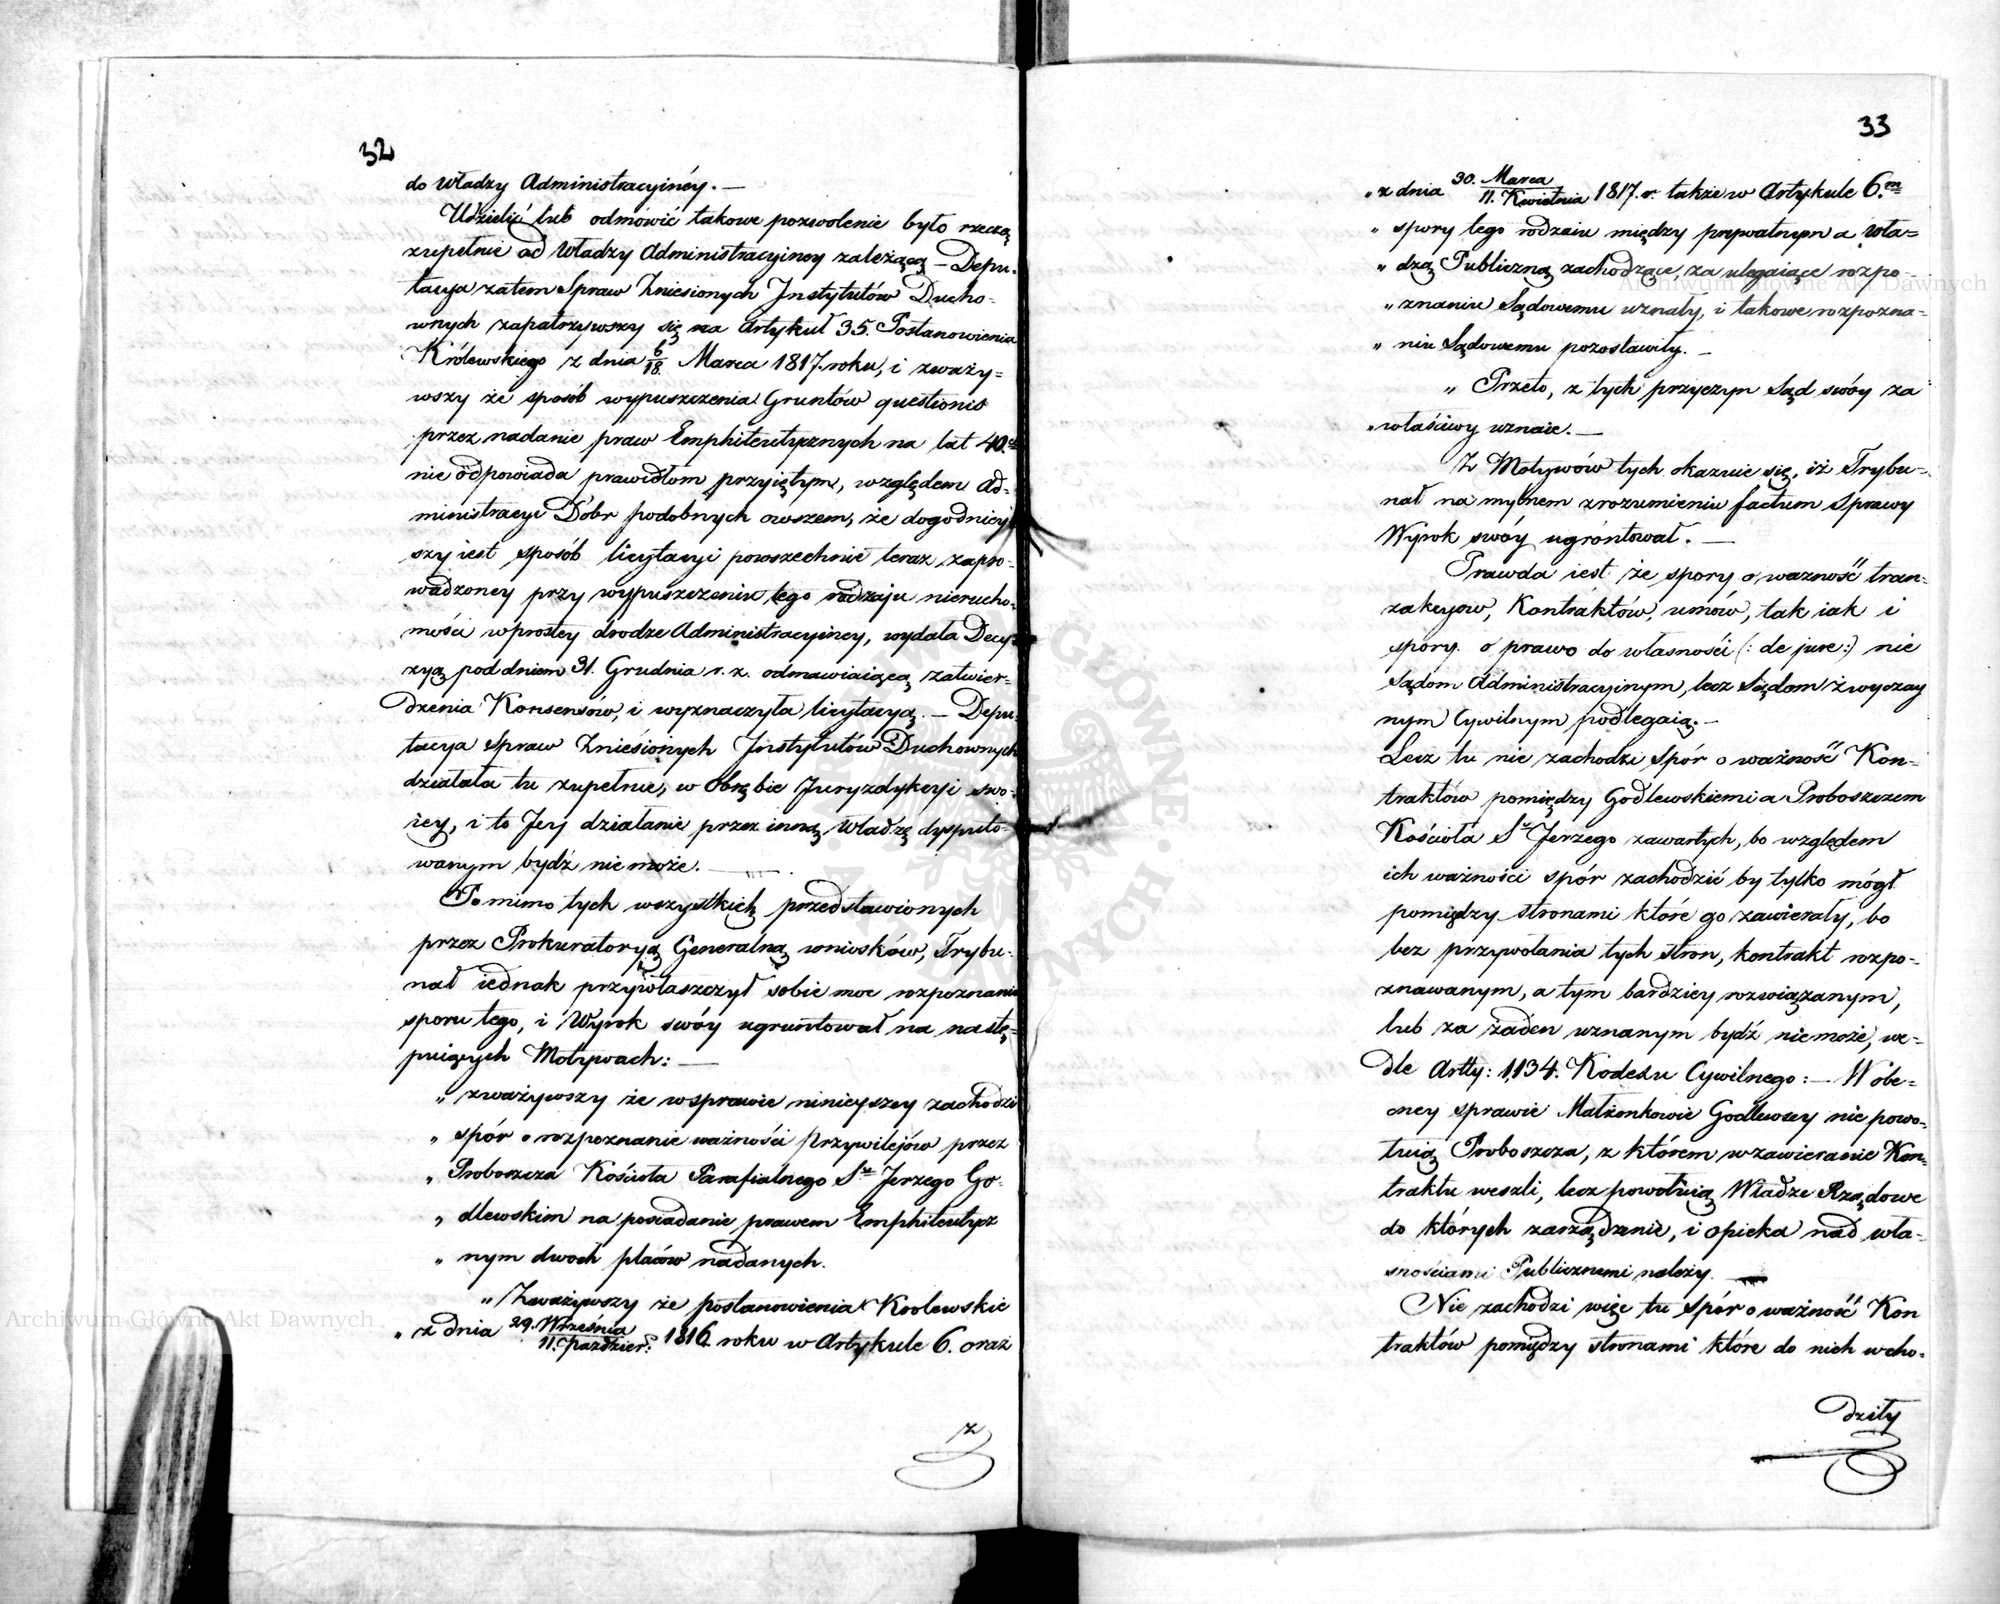 32
do Władzy Administracyinéy. —
Udzielić lub odmówić takowe pozwolenie było rzeczą
zupełnie od Władzy Administracyiney zależącą — Depu-
tacya zatem Spraw Zniesionych Instytutów Ducho-
wnych zapatrzywszy się na Artykuł 35 Postanowienia
Królewskiego z dnia 6/18 Marca 1817. roku, i zważy=
wszy że sposób wypuszczenia Gruntów questionis
przez nadanie praw Emphiteutycznych na lat 40.
nie odpowiada prawidłom przyiętym, względem Ad-
ministracyi Dóbr podobnych owszem, że dogodniey-
szy iest sposób licytacyi powszechnie teraz zapro-
wadzoney przy wypuszczeniu tego rodzaju nierucho-
mości w prostey drodze Administracyiney, wydała Decy-
zyą pod dniem 31. Grudnia r. z. odmawiaiącą zatwier-
dzenia Konsensow, i wyznaczyła licytacyą. — Depu-
tacya Spraw Zniesionych Instytutów Duchownych
działała tu zupełnie, w obrębie Juryzdykcyi swo-
iey, i to Jey działanie przez inną Władzę dysputo-
wanym bydź nie może. —
Pomimo tych wszystkich przedstawionych
przez Prokuratoryą Generalną wniosków, Trybu-
nał iednak przywłaszczył sobie moc rozpoznania
sporu tego, i Wyrok swóy ugruntował na nastę-
puiących Motywach: —
„ zważywszy że w sprawie ninieyszey zachodzi
„ spór o rozpoznanie ważności Przywilejów przez
„ Proboszcza Kościoła Parafialnego Sgo Jerzego Go-
„ dlewskim na posiadanie prawem Emphiteutycz
„ nym dwoch placów nadanych.
„ Zważywszy że postanowienia Krolewskie
„ z dnia 29. Września/11. Paździer. 1816 roku w Artykule 6. oraz
z
33
„ z dnia 30. Marca/11. Kwietnia 1817. r. także w Artykule 6.m
„ spory tego rodzaiu między prywatnym a wła=
„ dzą Publiczną zachodzące, za ulegaiące rozpo-
„ znaniu Sądowemu uznały, i takowe rozpozna-
„ niu Sądowemu pozostawiły. —
„ Przeto, z tych przyczyn Sąd swóy za
„ właściwy uznaie. —
Z Motywów tych okazuie się, iż Trybu-
nał na mylnem zrozumieniu factum Sprawy
Wyrok swóy ugróntował. —
Prawda iest że spory o wazność tran-
zakcyow, Kontraktów, umów, tak iak i
spory o prawo do własności (: de jure :) nie
Sądom Administracyinym, lecz Sądom zwyczay
nym Cywilnym podlegaią. —
Lecz tu nie zachodzi Spór o ważność Kon-
traktów pomiędzy Godlewskiemi a Proboszczem
Kościoła Sgo Jerzego zawartych, bo względem
ich ważności spór zachodzić by tylko mógł
pomiędzy stronami które go zawierały, bo
bez przywołania tych stron, kontrakt rozpo-
znawanym, a tym bardziey rozwiązanym,
lub za żaden uznanym bydź niemoże, we-
dle Artty: 1,134. Kodexu Cywilnego: — W obe-
cney sprawie Małżonkowie Godlewscy nie powo-
łuią Proboszcza, z którem w zawieranie Kon-
traktu weszli, lecz powołuią Władze Rządowe
do których zarządzenie, i opieka nad wła-
snościami Publicznemi należy. —
Nie zachodzi więc tu Spór o ważność Kon
traktów pomiędzy stronami które do nich wcho-
dziły
Archiwum Główne Akt Dawnych
Archiwum Główne Akt Dawnych